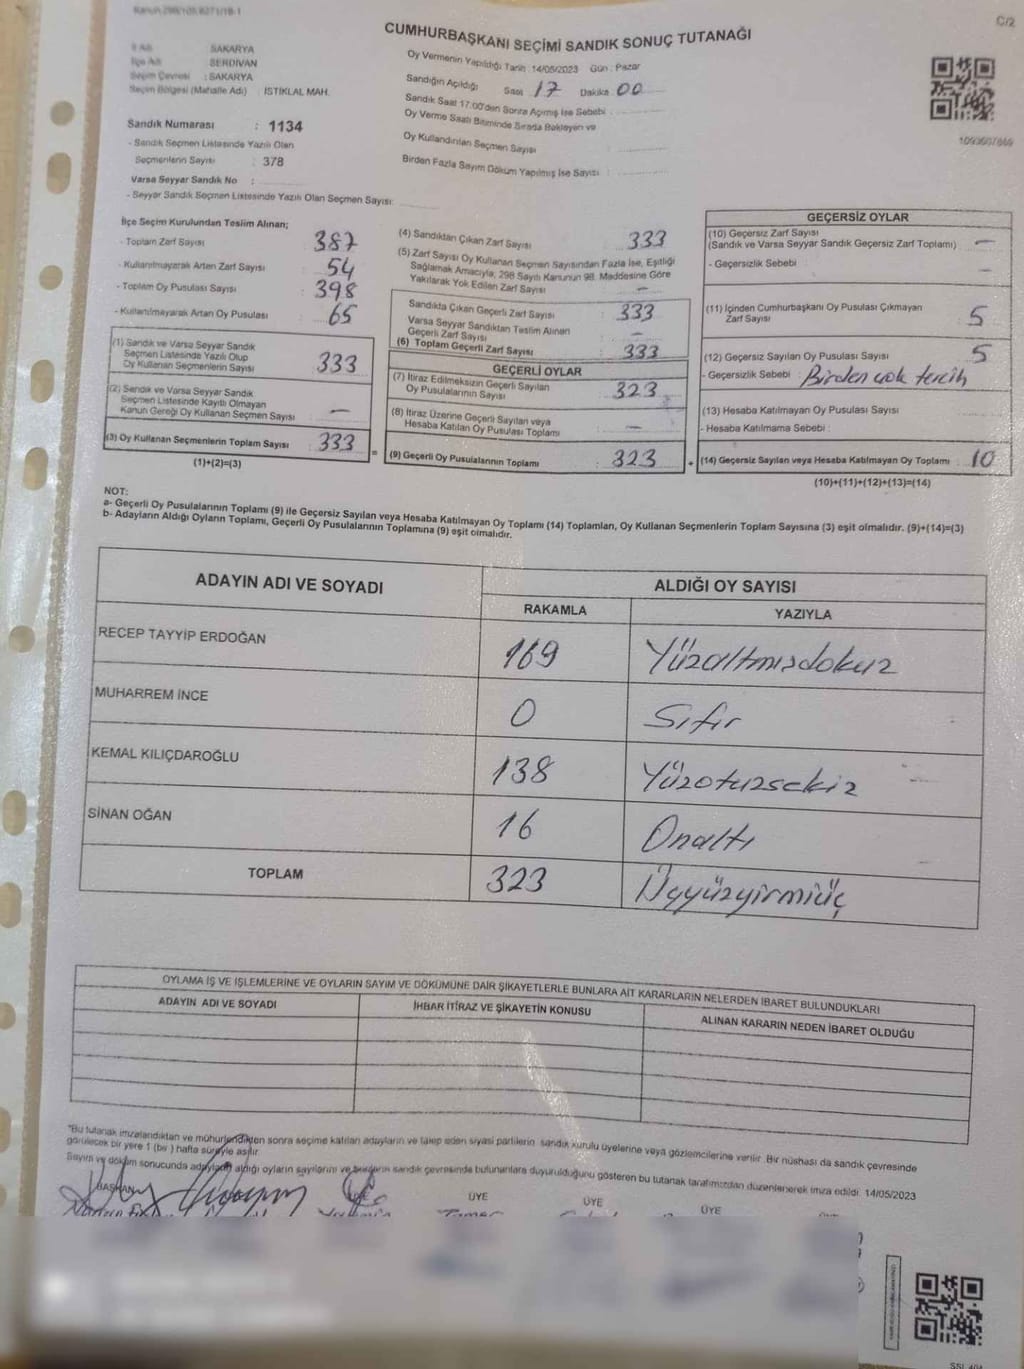 C/2
CUMHURBAŞKANI SEÇİMİ SANDIK SONUÇ TUTANAĞI
İl Adı : SAKARYA
İlçe Adı : SERDİVAN
Seçim Çevresi : SAKARYA
Seçim Bölgesi (Mahalle Adı) : İSTİKLAL MAH.
Sandık Numarası : 1134
- Sandık Seçmen Listesinde Yazılı Olan
Seçmenlerin Sayısı : 378
Varsa Seyyar Sandık No :
- Seyyar Sandık Seçmen Listesinde Yazılı Olan Seçmen Sayısı:
Oy Vermenin Yapıldığı Tarih : 14/05/2023 Gün : Pazar
Sandığın Açıldığı Saat : 17 Dakika : 00
Sandık Saat 17.00'den Sonra Açılmış İse Sebebi :
Oy Verme Saati Bitiminde Sırada Bekleyen ve
Oy Kullandırılan Seçmen Sayısı :
Birden Fazla Sayım Döküm Yapılmış İse Sayısı :
İlçe Seçim Kurulundan Teslim Alınan;
- Toplam Zarf Sayısı : 387
- Kullanılmayarak Artan Zarf Sayısı : 54
- Toplam Oy Pusulası Sayısı : 398
- Kullanılmayarak Artan Oy Pusulası : 65
(1) Sandık ve Varsa Seyyar Sandık
Seçmen Listesinde Yazılı Olup
Oy Kullanan Seçmenlerin Sayısı : 333
(2) Sandık ve Varsa Seyyar Sandık
Seçmen Listesinde Kayıtlı Olmayan
Kanun Gereği Oy Kullanan Seçmen Sayısı : —
(3) Oy Kullanan Seçmenlerin Toplam Sayısı : 333
(1)+(2)=(3)
(4) Sandıktan Çıkan Zarf Sayısı : 333
(5) Zarf Sayısı Oy Kullanan Seçmen Sayısından Fazla İse, Eşitliği
Sağlamak Amacıyla, 298 Sayılı Kanunun 98. Maddesine Göre
Yakılarak Yok Edilen Zarf Sayısı : —
Sandıkta Çıkan Geçerli Zarf Sayısı : 333
Varsa Seyyar Sandıktan Teslim Alınan
Geçerli Zarf Sayısı : —
(6) Toplam Geçerli Zarf Sayısı : 333
GEÇERLİ OYLAR
(7) İtiraz Edilmeksizin Geçerli Sayılan
Oy Pusulalarının Sayısı : 323
(8) İtiraz Üzerine Geçerli Sayılan veya
Hesaba Katılan Oy Pusulası Toplamı : —
(9) Geçerli Oy Pusulalarının Toplamı : 323
GEÇERSİZ OYLAR
(10) Geçersiz Zarf Sayısı
(Sandık ve Varsa Seyyar Sandık Geçersiz Zarf Toplamı) : —
- Geçersizlik Sebebi : —
(11) İçinden Cumhurbaşkanı Oy Pusulası Çıkmayan
Zarf Sayısı : 5
(12) Geçersiz Sayılan Oy Pusulası Sayısı : 5
- Geçersizlik Sebebi : Birden çok tercih
(13) Hesaba Katılmayan Oy Pusulası Sayısı :
- Hesaba Katılmama Sebebi :
(14) Geçersiz Sayılan veya Hesaba Katılmayan Oy Toplamı : 10
(10)+(11)+(12)+(13)=(14)
NOT:
a- Geçerli Oy Pusulalarının Toplamı (9) ile Geçersiz Sayılan veya Hesaba Katılmayan Oy Toplamı (14) Toplamları, Oy Kullanan Seçmenlerin Toplam Sayısına (3) eşit olmalıdır. (9)+(14)=(3)
b- Adayların Aldığı Oyların Toplamı, Geçerli Oy Pusulalarının Toplamına (9) eşit olmalıdır.
ADAYIN ADI VE SOYADI ALDIĞI OY SAYISI
RAKAMLA YAZIYLA
RECEP TAYYİP ERDOĞAN 169 Yüzaltmışdokuz
MUHARREM İNCE 0 Sıfır
KEMAL KILIÇDAROĞLU 138 Yüzotuzsekiz
SİNAN OĞAN 16 Onaltı
TOPLAM 323 Üçyüzyirmiüç
OYLAMA İŞ VE İŞLEMLERİNE VE OYLARIN SAYIM VE DÖKÜMÜNE DAİR ŞİKAYETLERLE BUNLARA AİT KARARLARIN NELERDEN İBARET BULUNDUKLARI
ADAYIN ADI VE SOYADI İHBAR İTİRAZ VE ŞİKAYETİN KONUSU ALINAN KARARIN NEDEN İBARET OLDUĞU
"Bu tutanak imzalandıktan ve mühürlendikten sonra seçime katılan adayların ve takip eden siyasi partilerin sandık kurulu üyelerine veya gözlemcilerine verilir. Bir nüshası da sandık çevresinde
görülecek bir yere 1 (bir) hafta süreyle asılır.
Sayım ve döküm sonucunda adayların aldığı oyların sayılarını ve bunların sandık çevresinde bulunanlara duyurulduğunu gösteren bu tutanak tarafımızdan düzenlenerek imza edildi. 14/05/2023
BAŞKAN ÜYE ÜYE ÜYE